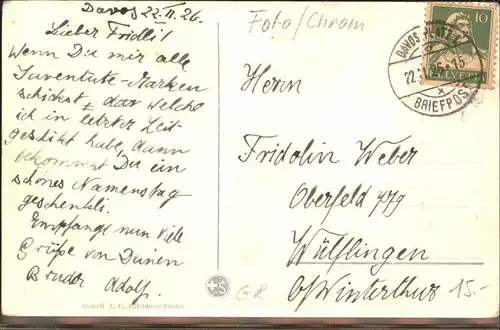 Davos 22. II. 26.
Lieber Fridli!
Wenn Du mir alle
Juventute-Marken
schickst, dar welche
ich in letzter Zeit
geschikt habe, dann
bekommst Du ein
schönes Namenstag
geschenkli.
Empfange nun viele
Grüße von Deinen
Bruder Adolf.
Foto/Chrom
10
HELVETIA
DAVOS-PLATZ
BRIEFPOST
Herrn
Fridolin Weber
Oberfeld
Wülflingen
b/Winterthur
15.-
GR